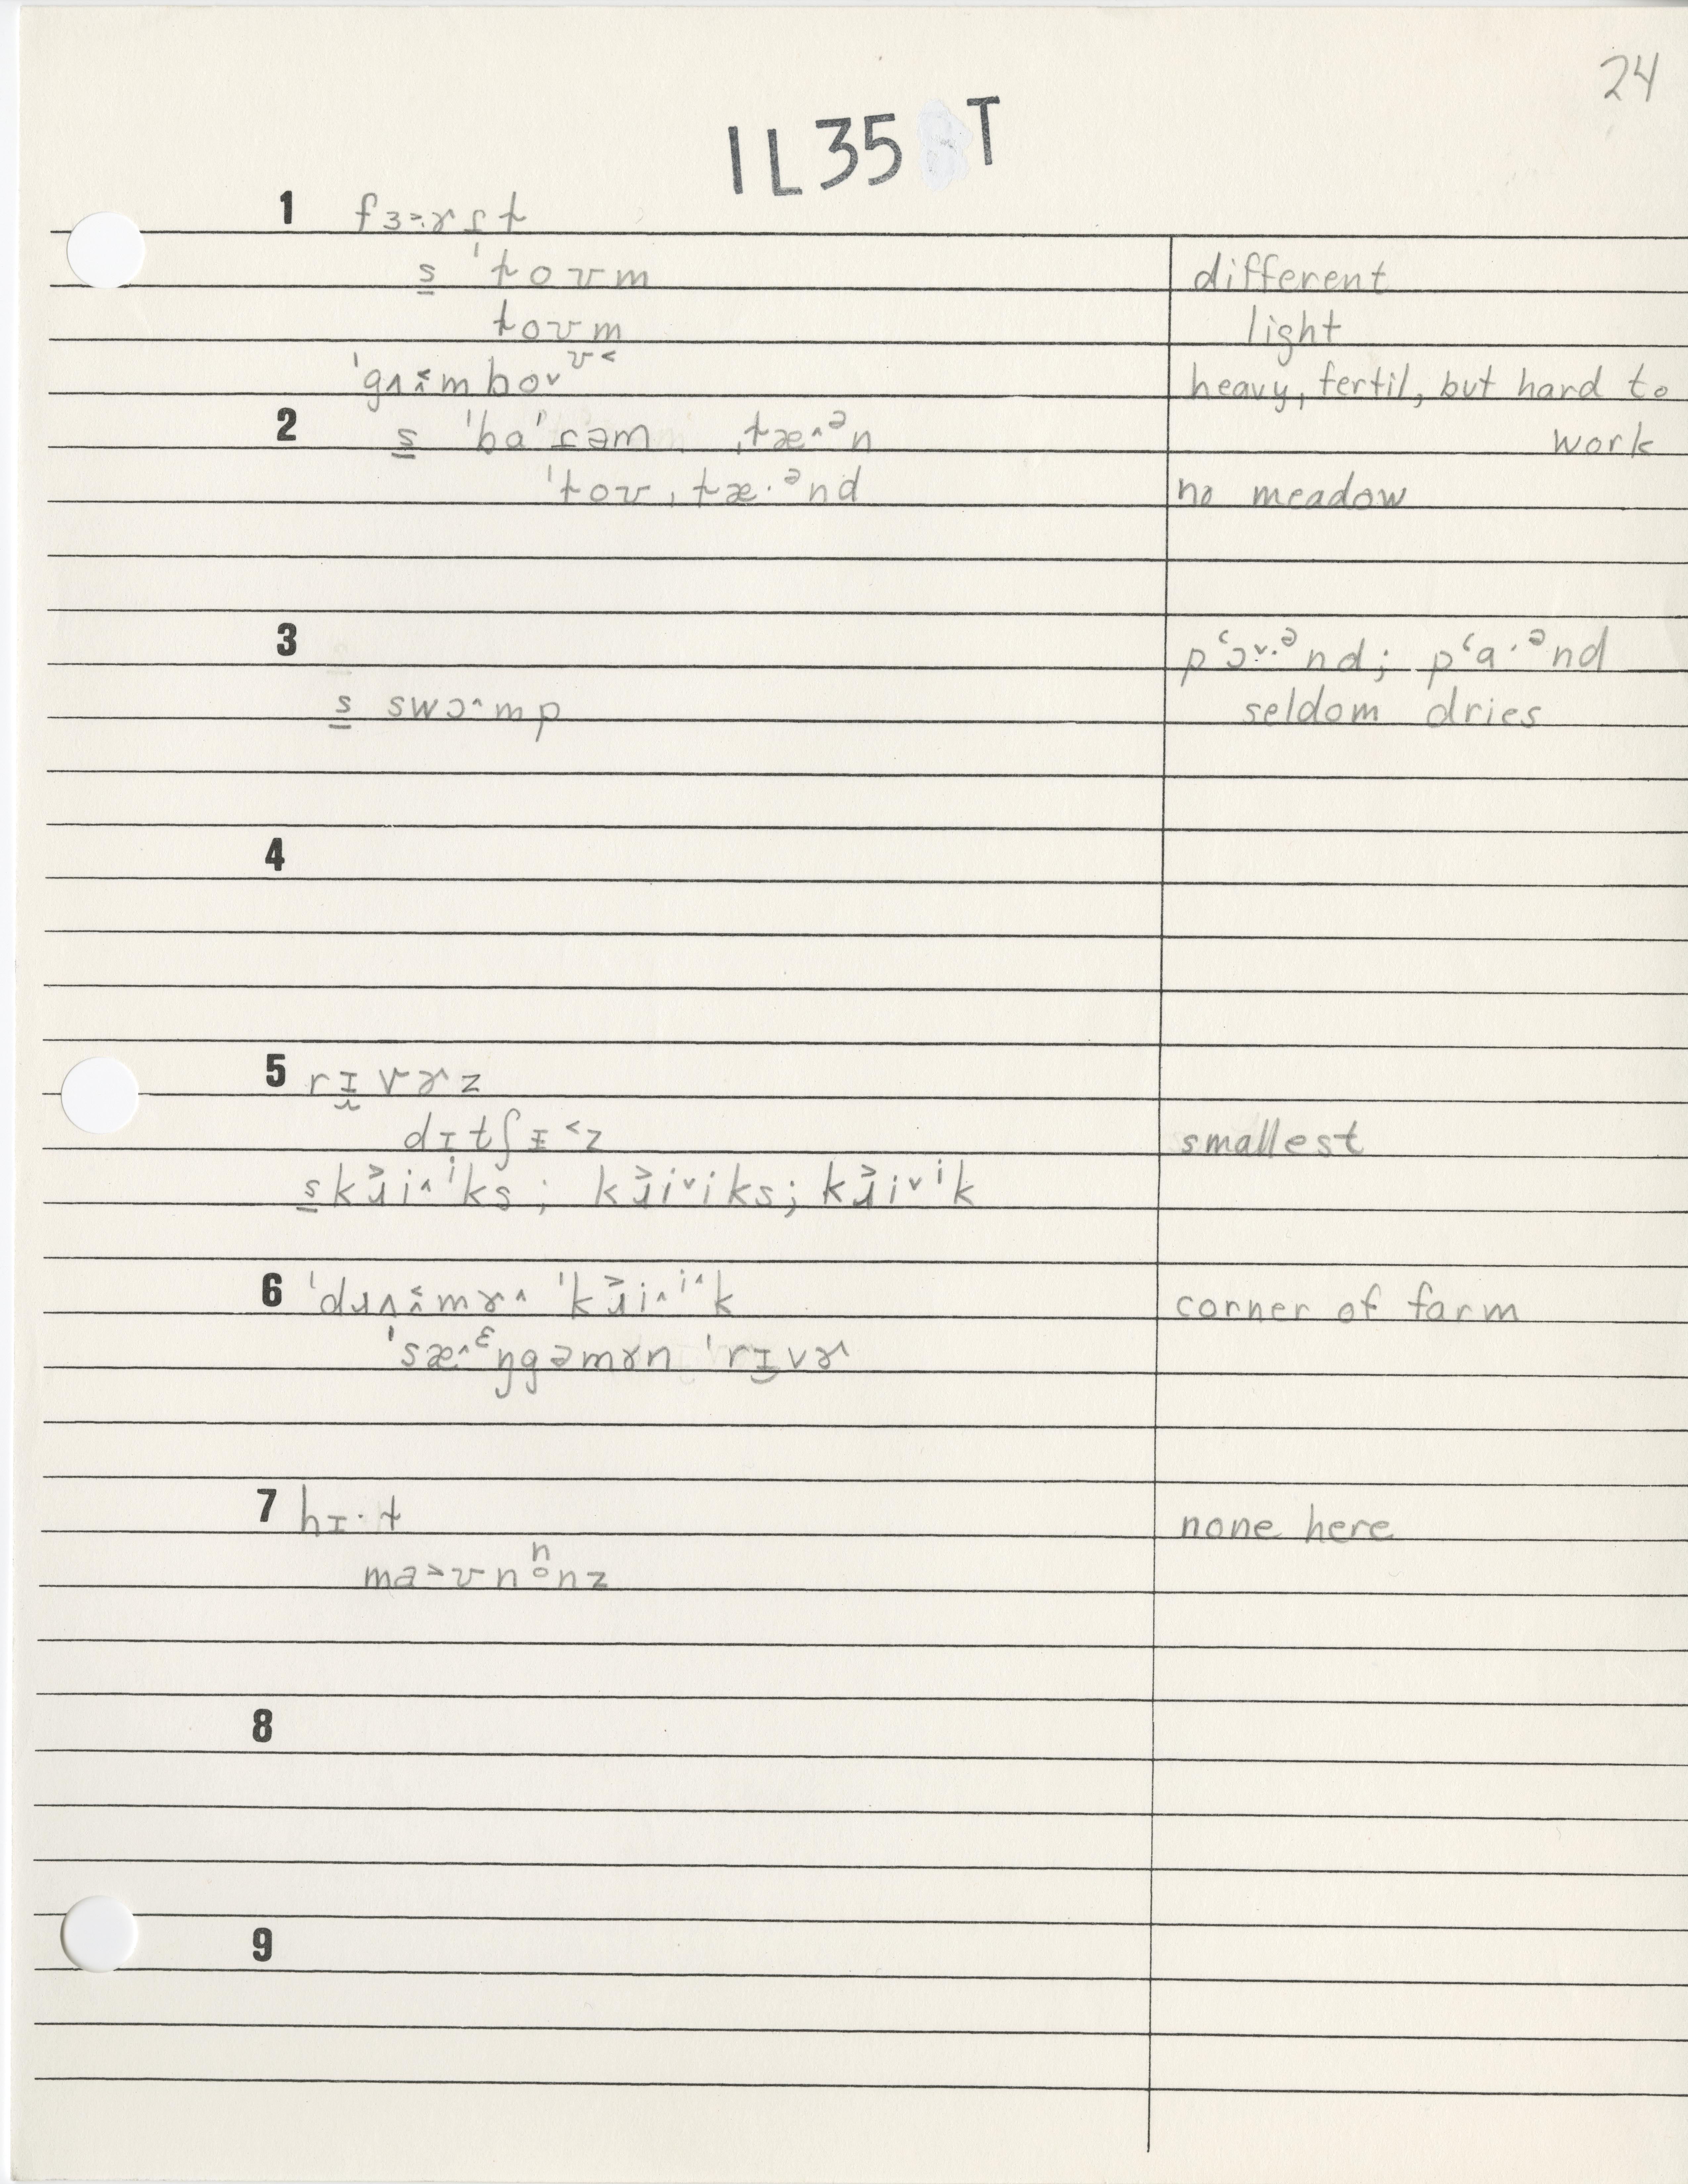 24
IL35 T
1 fɜ˃·ɚɾɫ
s̲ ˈɫoʊm different
ɫoʊm light
ˈgʌɨ̞˂mboᵛʊ˂ heavy, fertil, but hard to
work
2 s̲ ˈbaˈɾəm ˌɫæ^ᵊn
ˈɫoʊˌɫæ·ᵊnd no meadow
3 pʻɔᵛ·ᵊnd; pʻɑ·ᵊnd
s̲ swɔ^mp seldom dries
4
5 rɪvɚz
dɪtʃɨ˂z smallest
s̲ kɹ̥˃i^ⁱks; kɹ̥˃iᵛiks; kɹ̥˃iᵛⁱk
6 ˈdɹʌɨ̞˂mɚ^ ˈkɹ̥˃i^ⁱ^k corner of farm
ˈsæ^ᵋŋgəmɚn ˈrɪvɚ
7 hɪ·ɫ none here
ma˃ʊnⁿ̥nz
8
9